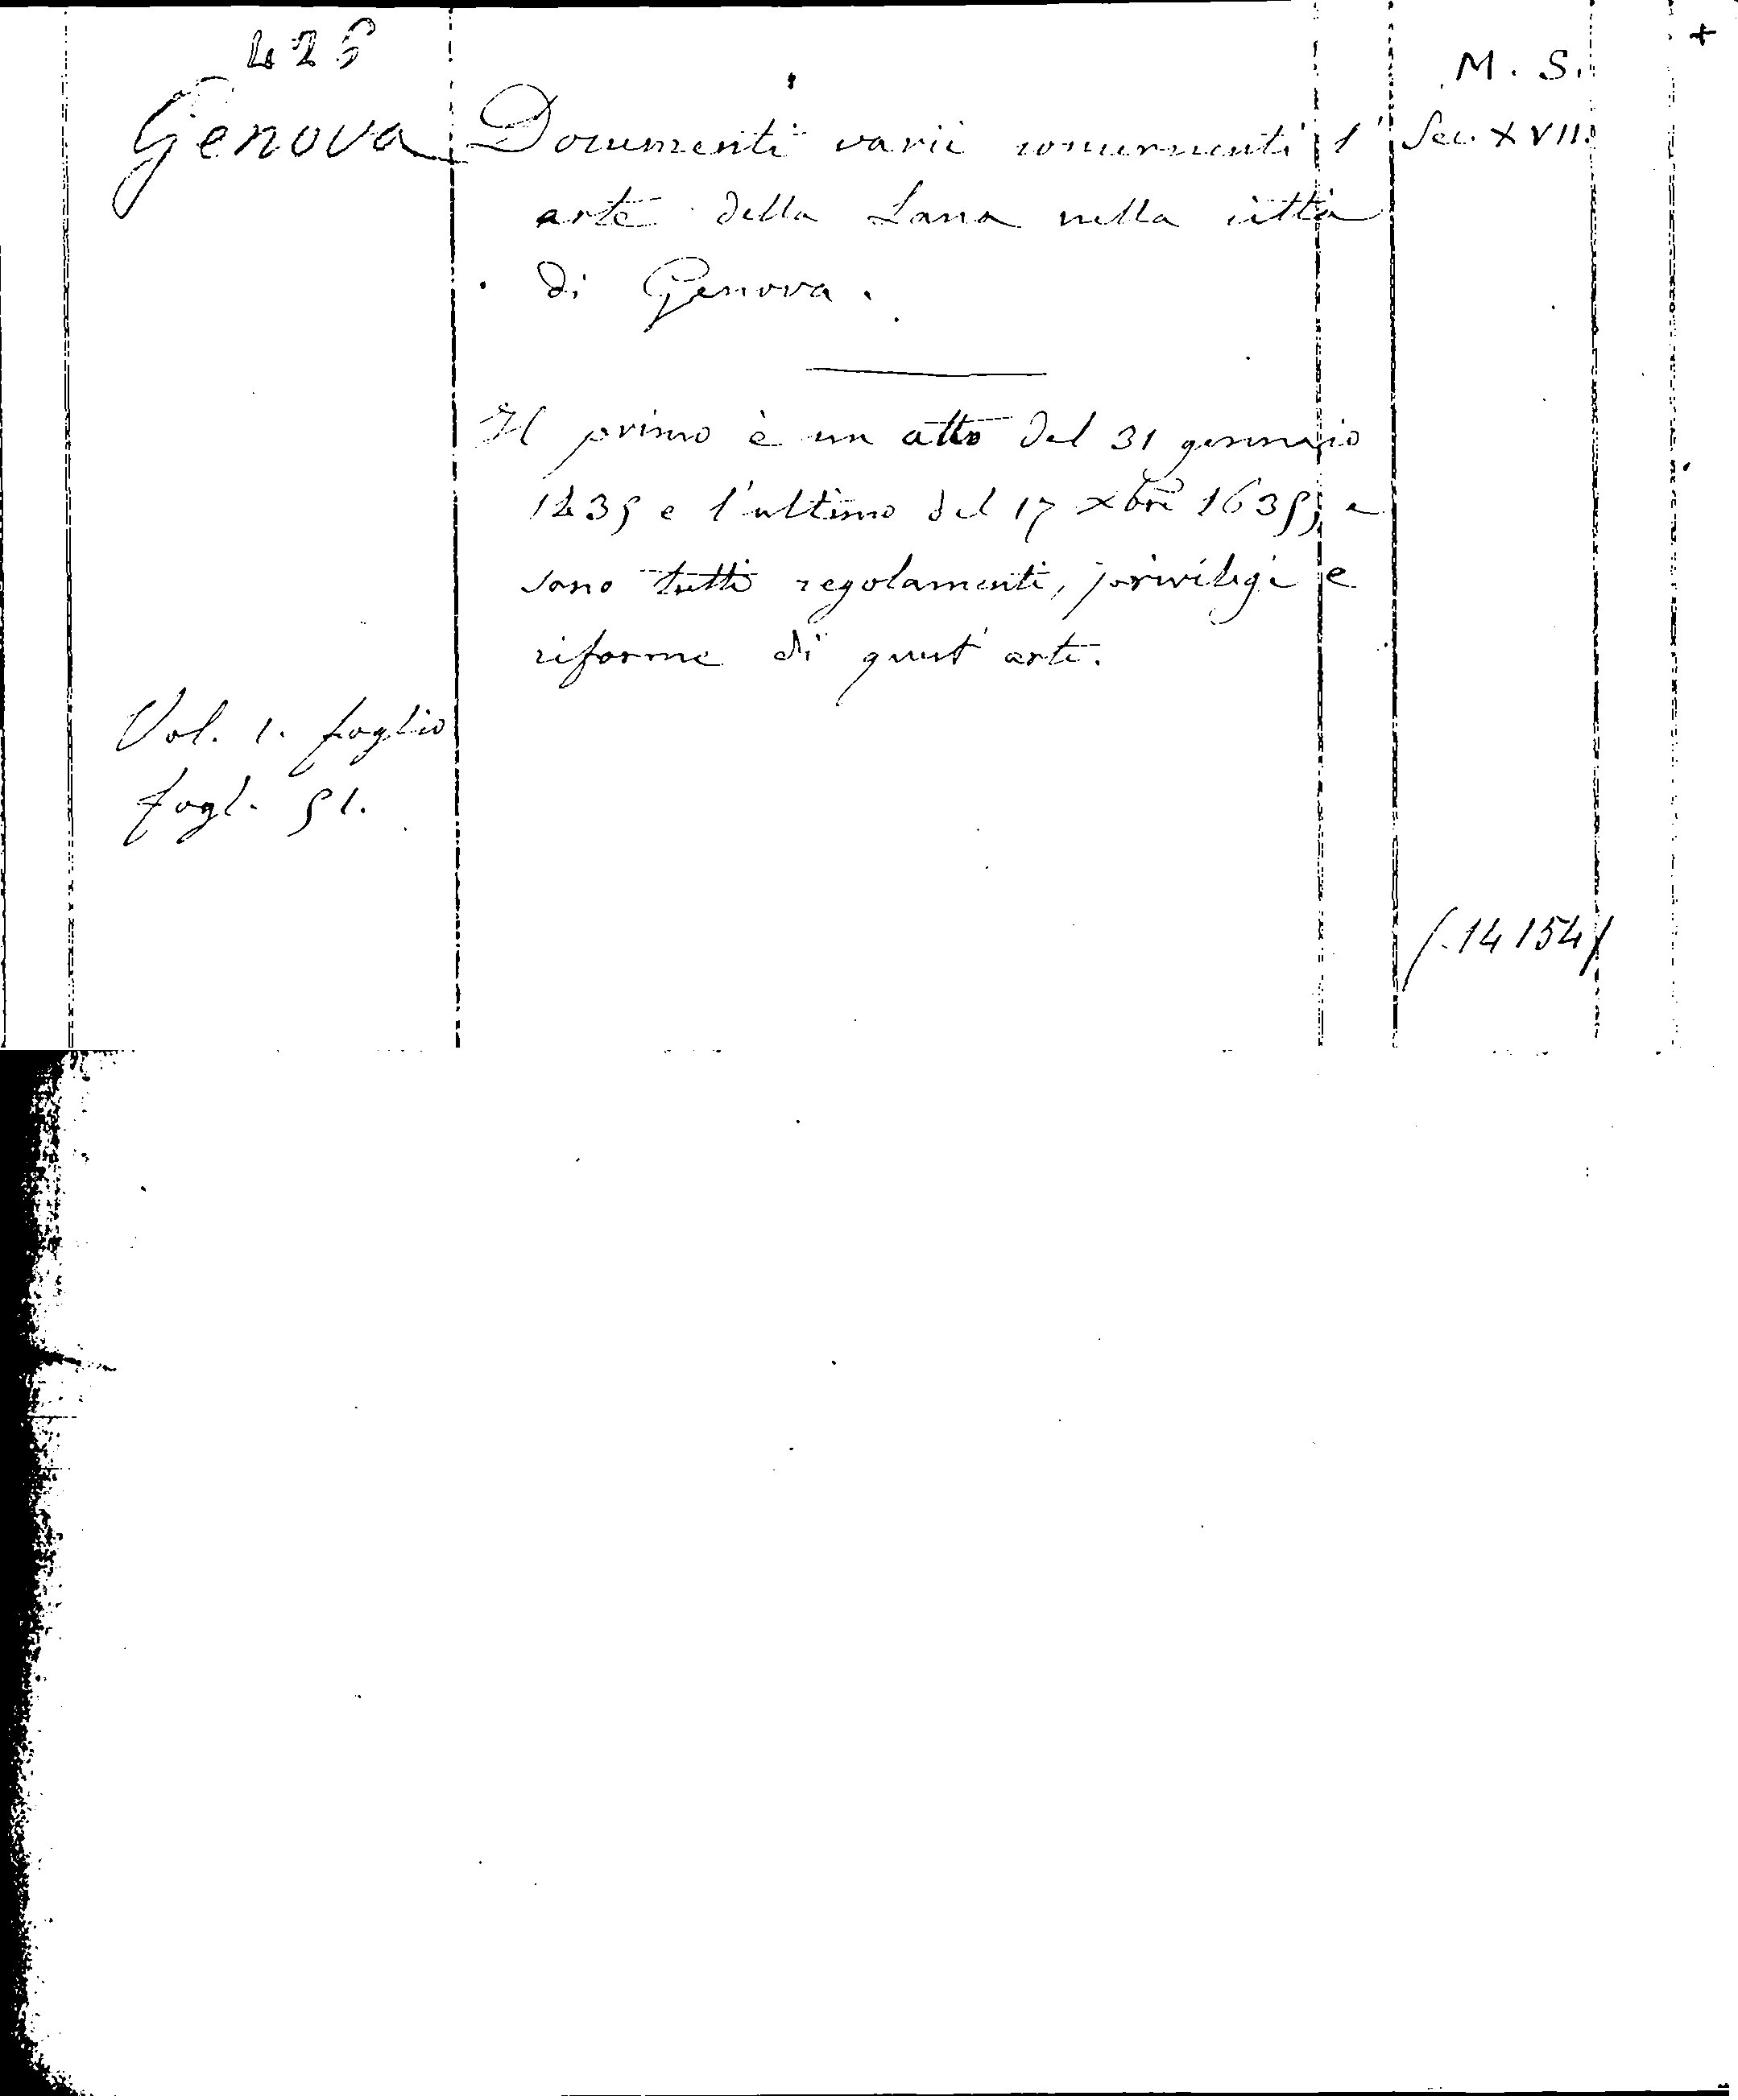 425
+
M. S.
Genova Documenti varii concernenti l'
Sec. XVII.
arte della Lana nella città
di Genova.
Il primo è un atto del 31 gennaio
1435 e l'ultimo del 17 xbre 1635; e
sono tutti regolamenti, privilegi e
riforme di quest'arte.
Vol. 1. foglio
fogl. 51.
(.14154)